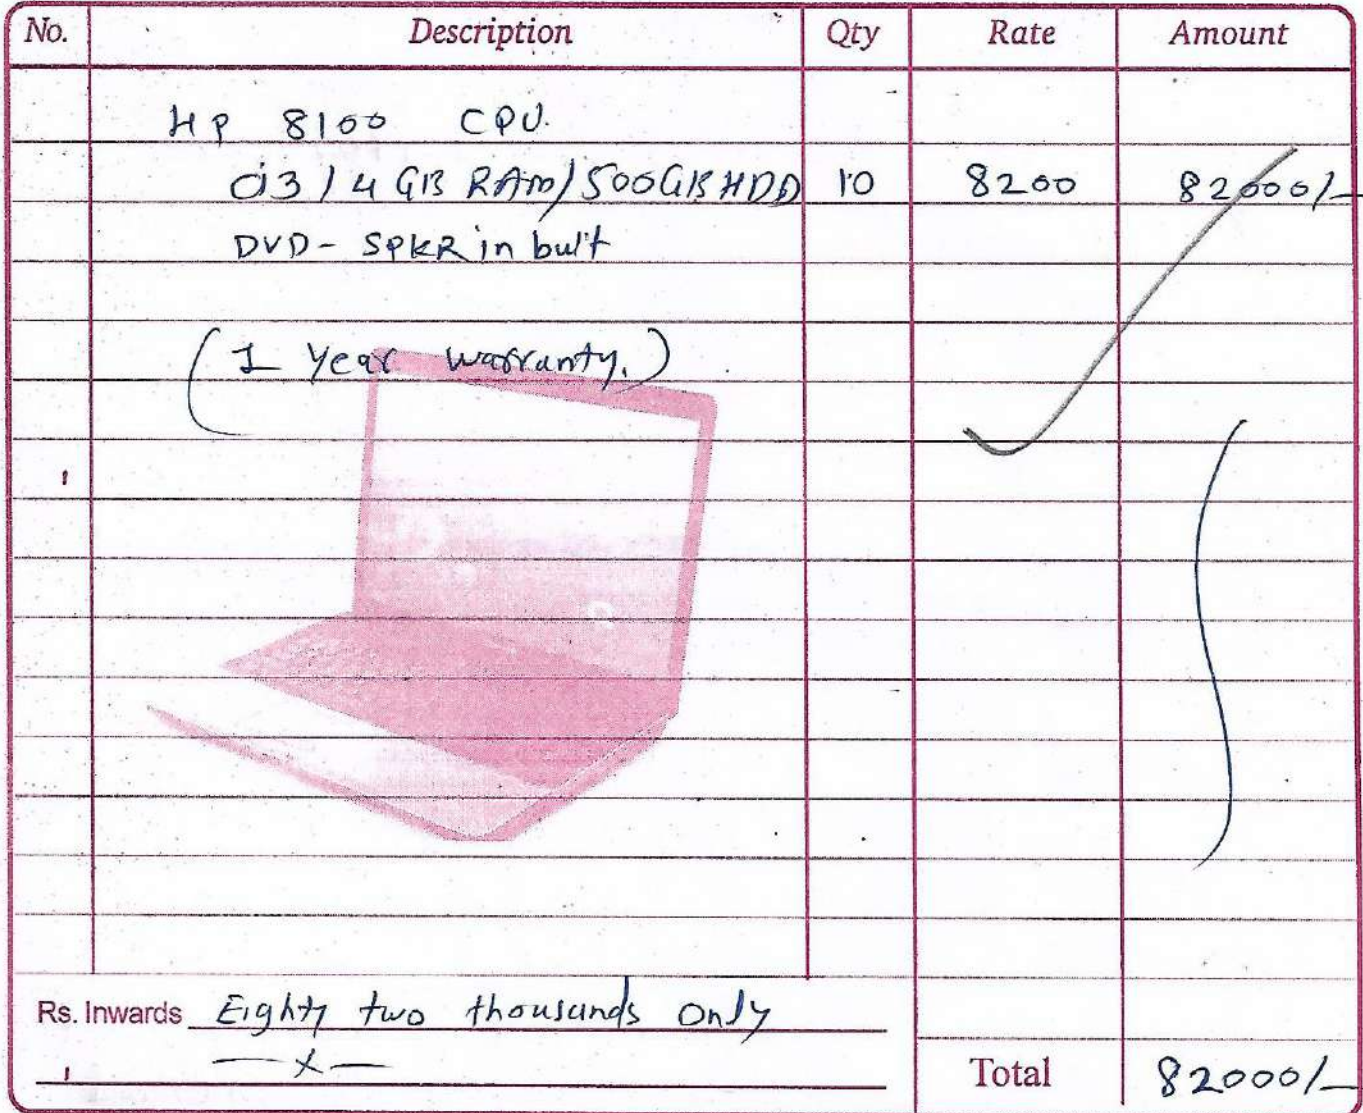 No. Description Qty Rate Amount
HP 8100 CPU.
Ci3 / 4 GB RAM / 500GB HDD 10 8200 82000/-
DVD - SPKR in buit
(1 Year warranty.)
Rs. Inwards Eighty two thousands Only
—x—
Total 82000/-